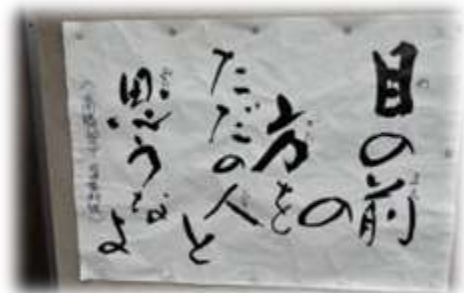 目の前の
方を
ただの人と
思うなよ